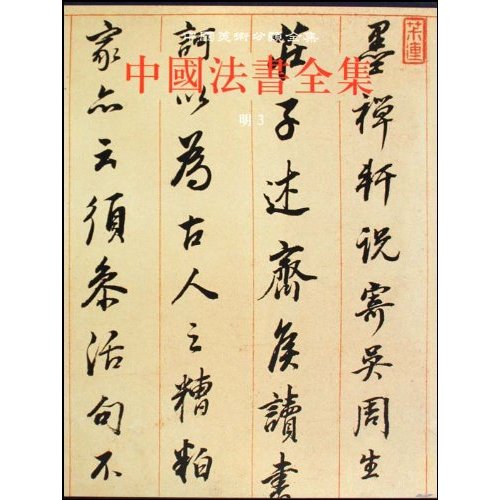 中國美術分類全集
中國法書全集
明 3
墨禪軒說寄吳周生
莊子述齊侯讀書
訶以為古人之糟粕
家亦云須參活句不